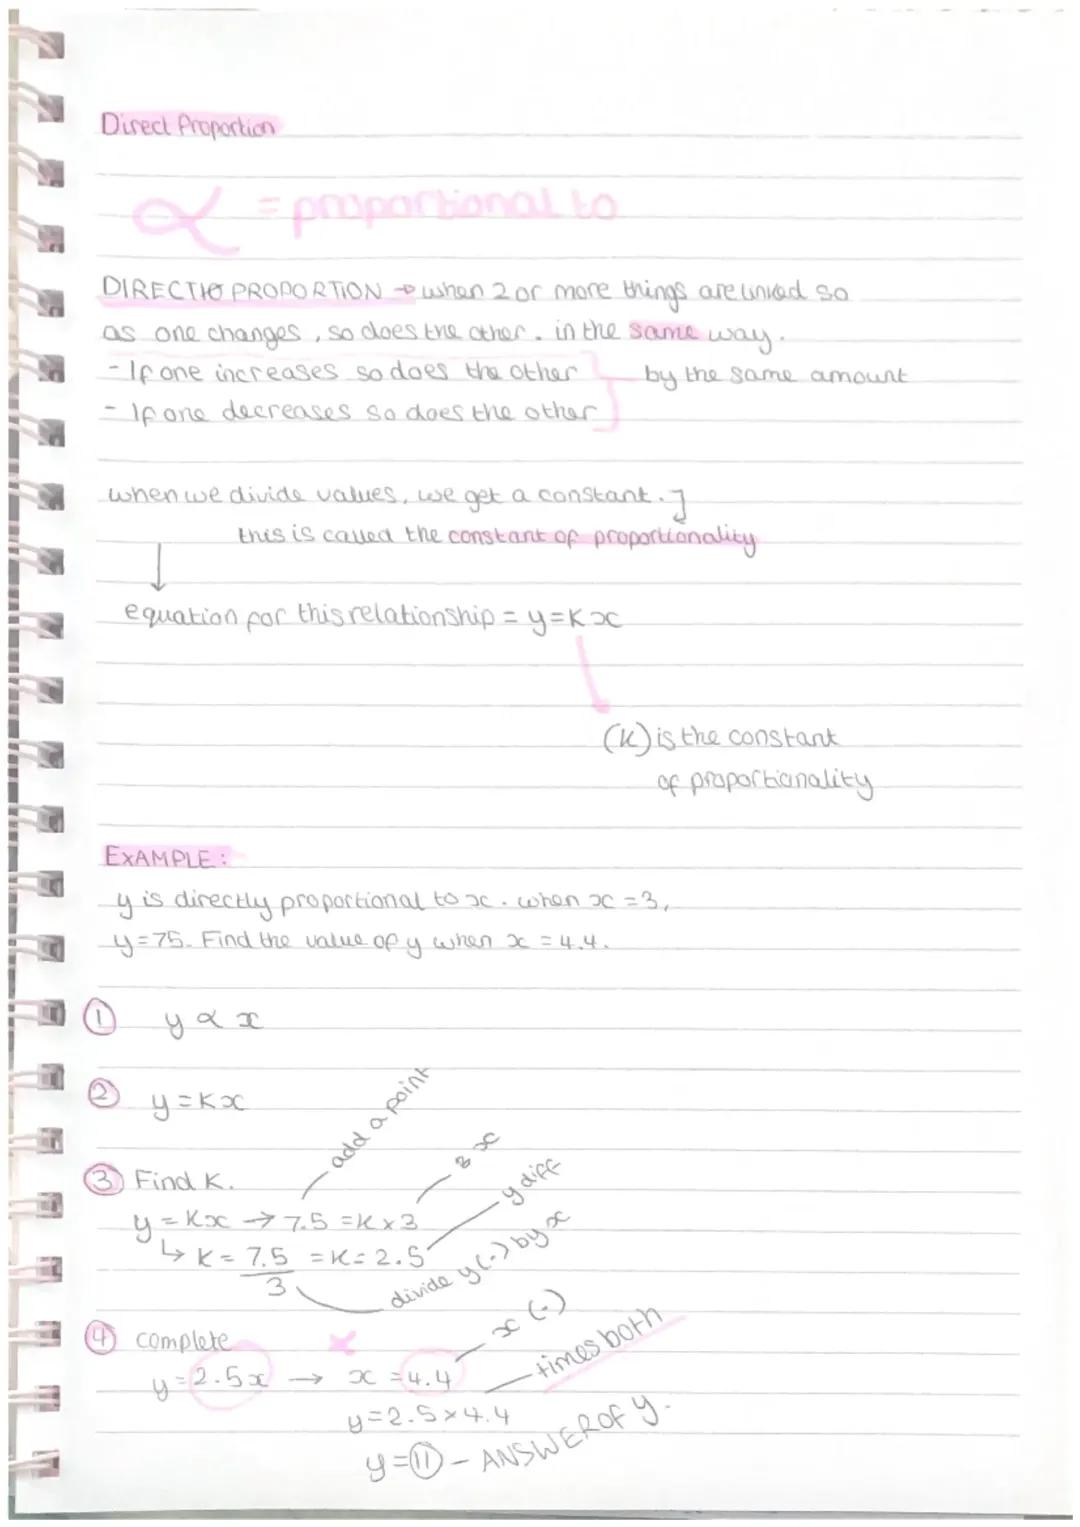 Direct Proportion
∝ = proportional to
DIRECTIO PROPORTION → when 2 or more things are linked so
as one changes, so does the other. in the same way.
- If one increases so does the other
by the same amount
- If one decreases so does the other
when we divide values, we get a constant.
this is called the constant of proportionality
equation for this relationship = y=Kx
(K) is the constant
of proportionality
EXAMPLE:
y is directly proportional to x. when x = 3,
y=75. Find the value of y when x = 4.4.
① y ∝ x
② y=Kx
add a point
x
③ Find K.
y diff
y = Kx → 7.5 = K x 3
↳ K = 7.5 = K = 2.5
3
divide y (.) by x
④ complete
x (.)
times both
y = 2.5x → x = 4.4
y = 2.5 x 4.4
y = ⑪ - ANSWER OF y.